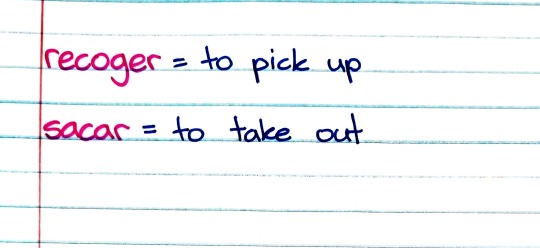 recoger = to pick up
sacar = to take out